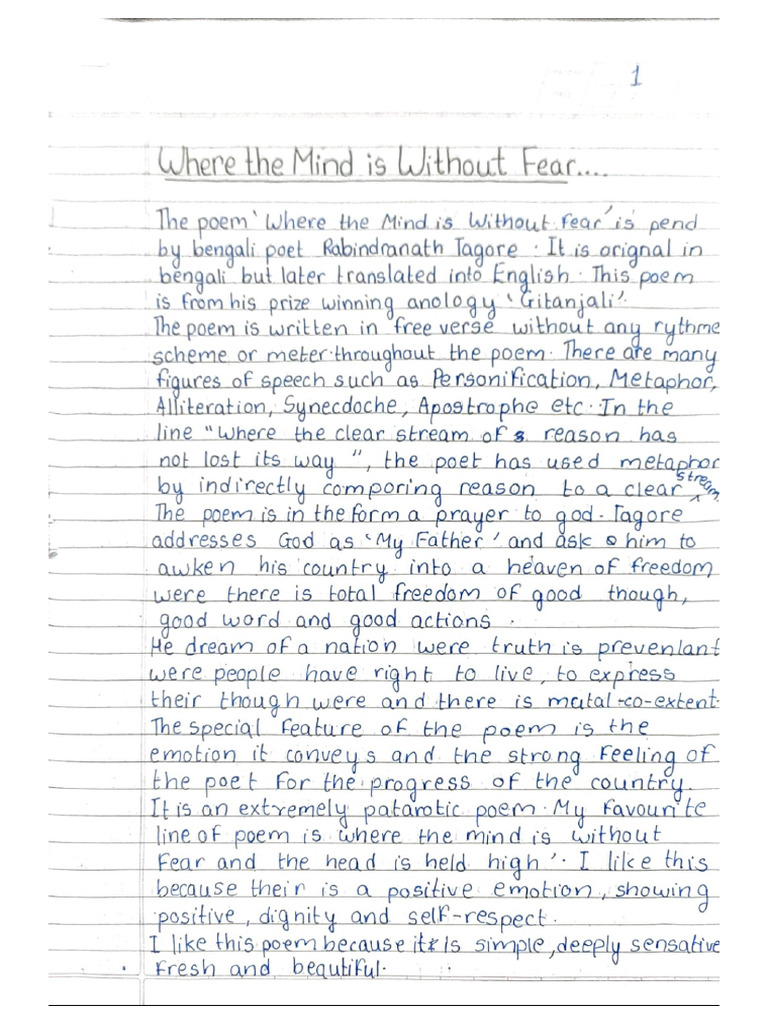 1
Where the Mind is Without Fear....
The poem 'Where the Mind is Without Fear' is pend
by bengali poet Rabindranath Tagore. It is orignal in
bengali but later translated into English. This poem
is from his prize winning anology 'Gitanjali'.
The poem is written in free verse without any rythme
scheme or meter throughout the poem. There are many
figures of speech such as Personification, Metaphor,
Alliteration, Synecdoche, Apostrophe etc. In the
line "Where the clear stream of reason has
not lost its way", the poet has used metaphor
by indirectly comporing reason to a clear stream.
The poem is in the form a prayer to god. Tagore
addresses God as 'My Father' and ask him to
awken his country into a heaven of freedom
were there is total freedom of good though,
good word and good actions.
He dream of a nation were truth is prevenlant
were people have right to live, to express
their though were and there is mutal co-extent.
The special feature of the poem is the
emotion it conveys and the strong feeling of
the poet for the progress of the country.
It is an extremely patarotic poem. My favourite
line of poem is where the mind is without
fear and the head is held high'. I like this
because their is a positive emotion, showing
positive, dignity and self-respect.
I like this poem because it is simple, deeply sensative
fresh and beautiful.